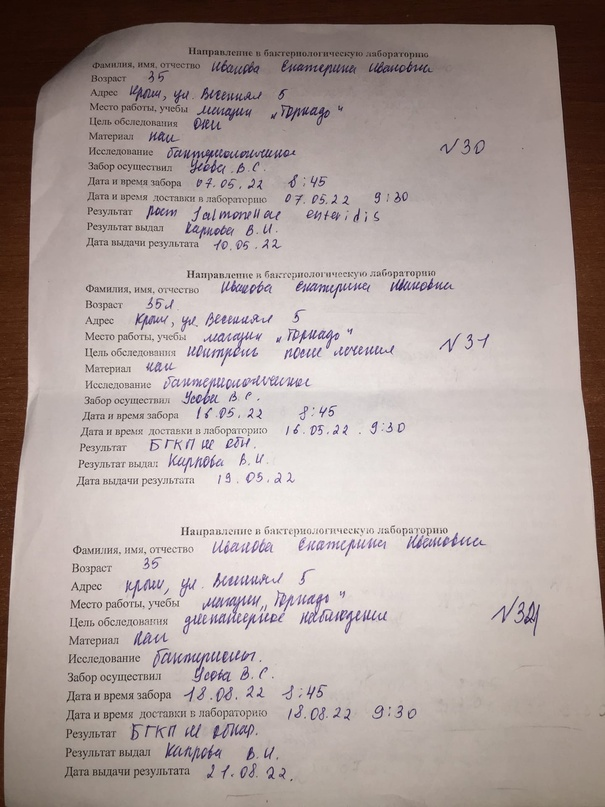 Направление в бактериологическую лабораторию
Фамилия, имя, отчество Иванова Екатерина Ивановна
Возраст 35
Адрес Крым, ул. Весенняя 5
Место работы, учебы магазин „Торнадо"
Цель обследования ОКИ
Материал кал
Исследование бактериологическое N30
Забор осуществил Усова В.С.
Дата и время забора 07.05.22 8:45
Дата и время доставки в лабораторию 07.05.22 9:30
Результат рост Salmonellae enteridis
Результат выдал Карпова В.И.
Дата выдачи результата 10.05.22
Направление в бактериологическую лабораторию
Фамилия, имя, отчество Иванова Екатерина Ивановна
Возраст 35л
Адрес Крым, ул. Весенняя 5
Место работы, учебы магазин „Торнадо"
Цель обследования контроль после лечения N31
Материал кал
Исследование бактериологическое
Забор осуществил Усова В.С.
Дата и время забора 16.05.22 8:45
Дата и время доставки в лабораторию 16.05.22. 9:30
Результат БГКП не обн.
Результат выдал Карпова В.И.
Дата выдачи результата 19.05.22
Направление в бактериологическую лабораторию
Фамилия, имя, отчество Иванова Екатерина Ивановна
Возраст 35
Адрес Крым, ул. Весенняя 5
Место работы, учебы магазин „Торнадо"
Цель обследования диспансерное наблюдение N32
Материал кал
Исследование бактериолог.
Забор осуществил Усова В.С.
Дата и время забора 18.08.22 8:45
Дата и время доставки в лабораторию 18.08.22 9:30
Результат БГКП не обнар.
Результат выдал Капрова В.И.
Дата выдачи результата 21.08.22.